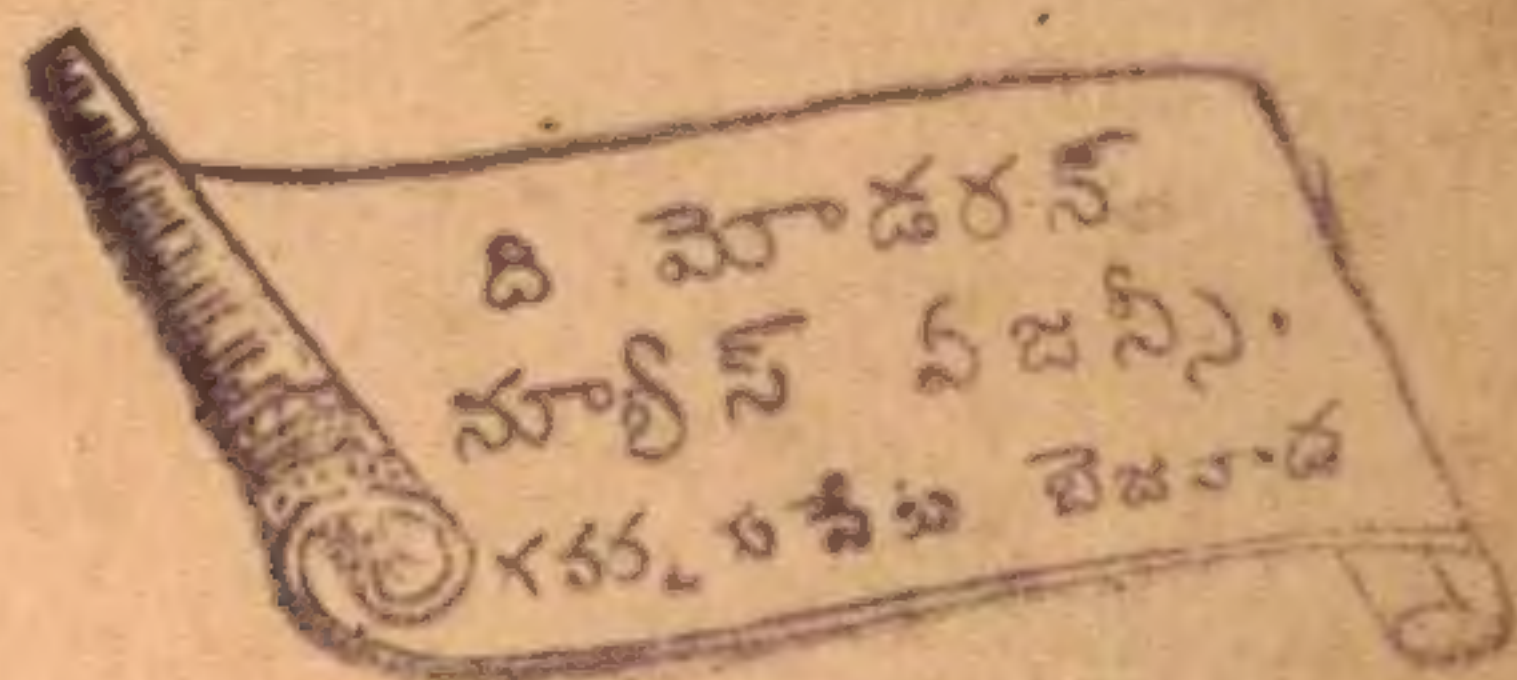 ది మోడరన్
న్యూస్ ఏజన్సీ.
గవర్నరుపేట బెజవాడ